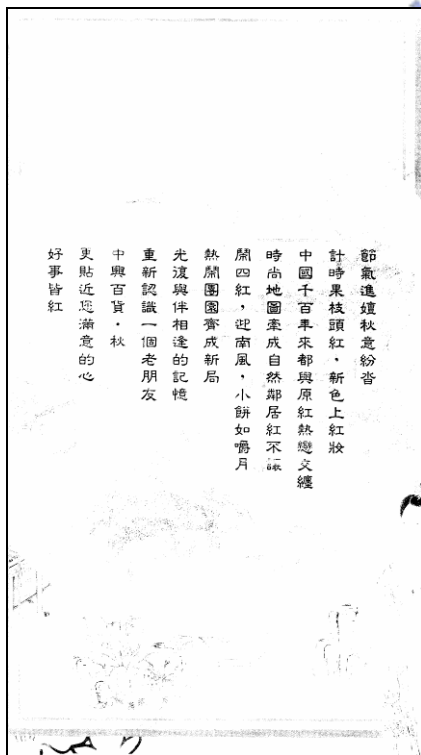 節氣進嬗秋意紛沓
計時果枝頭紅，新色上紅妝
中國千百年來都與原紅熱戀交纏
時尚地圖牽成自然鄰居紅不讓
鬧四紅，迎南風，小餅如嚼月
熱鬧團圓齊成新局
光復與伴相逢的記憶
重新認識一個老朋友
中興百貨・秋
更貼近您滿意的心
好事皆紅